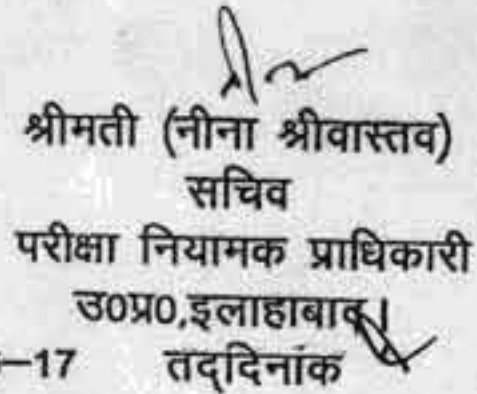 श्रीमती (नीना श्रीवास्तव)
सचिव
परीक्षा नियामक प्राधिकारी
उ0प्र0,इलाहाबाद।
–17 तद्दिनांक